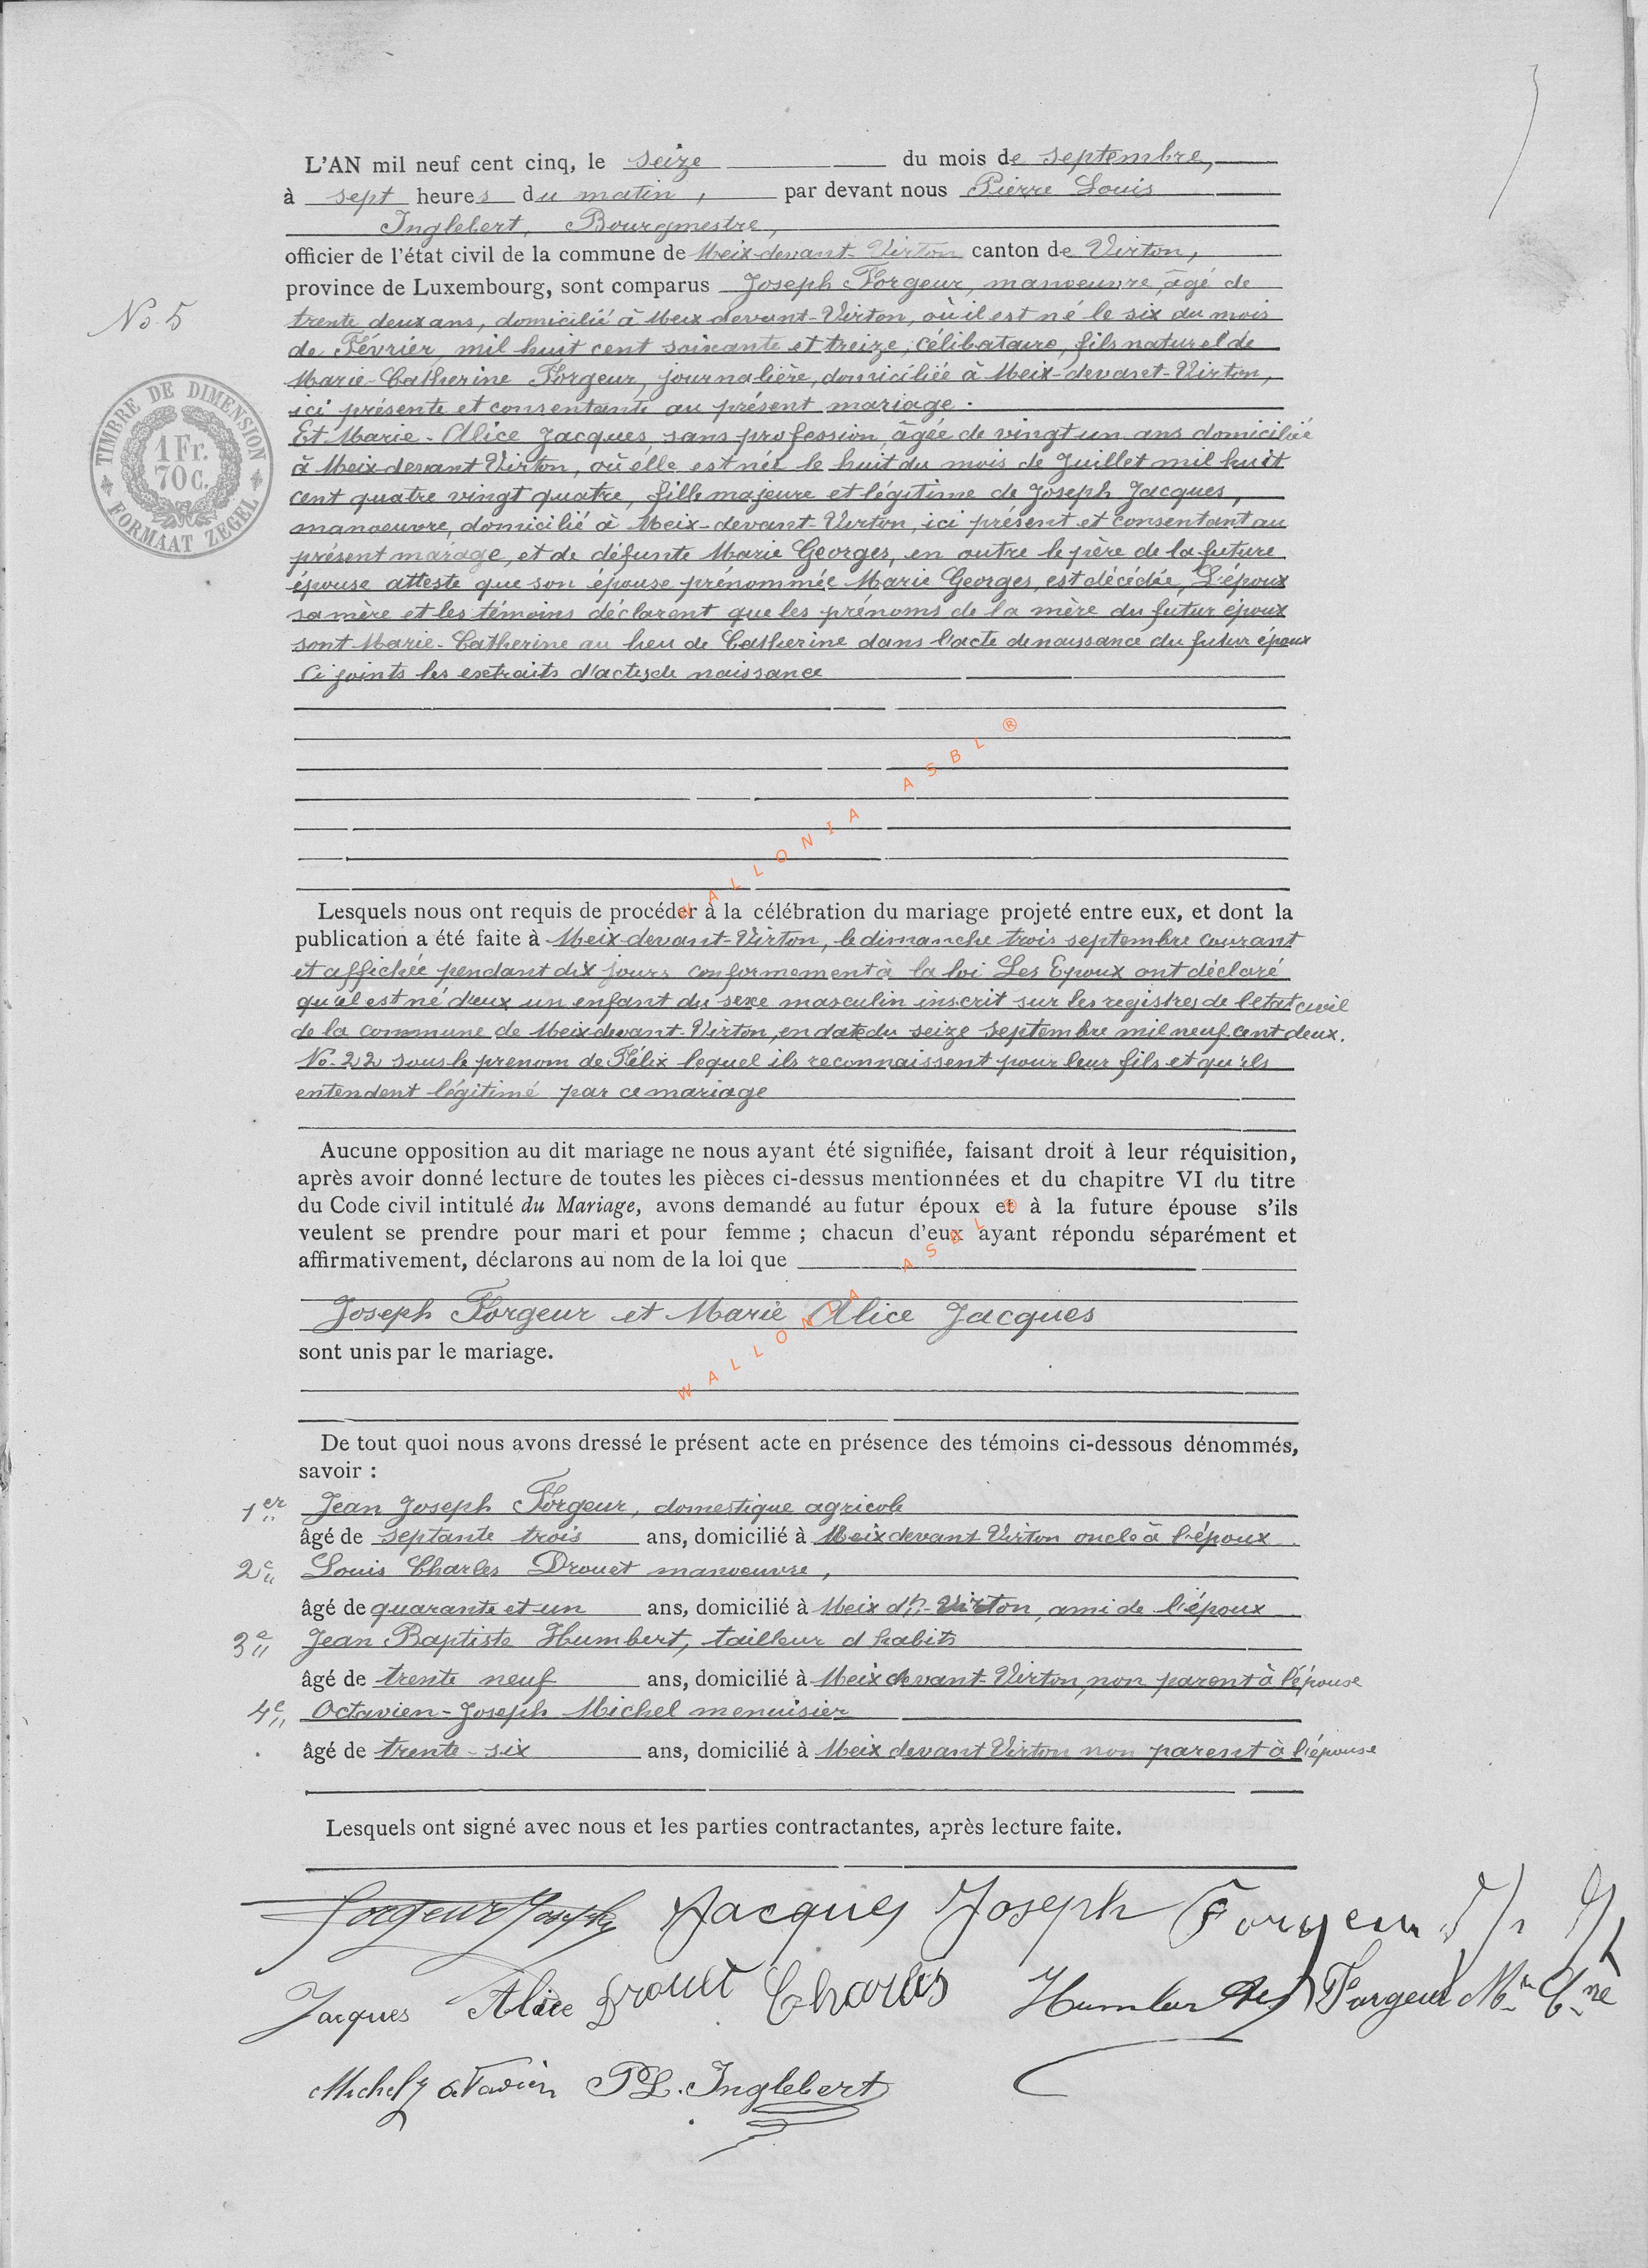 L'AN mil neuf cent cinq, le seize du mois de septembre,
à sept heures du matin, par devant nous Pierre Louis
Inglebert, Bourgmestre,
officier de l'état civil de la commune de Meix-devant-Virton canton de Virton,
province de Luxembourg, sont comparus Joseph Forgeur, manoeuvre, âgé de
No. 5
trente deux ans, domicilié à Meix-devant-Virton, où il est né le six du mois
de Février, mil huit cent soixante et treize, célibataire, fils naturel de
Marie-Catherine Forgeur, journalière, domiciliée à Meix-devant-Virton,
ici présente et consentante au présent mariage.
TIMBRE DE DIMENSION
1 Fr.
70 c.
FORMAAT ZEGEL
Et Marie-Alice Jacques, sans profession, âgée de vingt un ans domiciliée
à Meix-devant Virton, où elle est née le huit du mois de Juillet mil huit
cent quatre vingt quatre, fille majeure et légitime de Joseph Jacques,
manoeuvre, domicilié à Meix-devant-Virton, ici présent et consentant au
présent mariage, et de défunte Marie Georges, en outre le père de la future
épouse atteste que son épouse prénommée Marie Georges, est décédée, L'époux
sa mère et les témoins déclarent que les prénoms de la mère du futur époux
sont Marie-Catherine au lieu de Catherine dans l'acte de naissance du futur époux
Ci joints les extraits d'actes de naissance
Lesquels nous ont requis de procéder à la célébration du mariage projeté entre eux, et dont la
publication a été faite à Meix-devant-Virton, le dimanche trois septembre courant
et affichée pendant dix jours conformement à la loi Les Epoux ont déclaré
qu'il est né d'eux un enfant du sexe masculin inscrit sur les registres de l'etat civil
de la commune de Meix-devant-Virton, en date du seize septembre mil neuf cent deux.
No. 22 sous le prenom de Félix lequel ils reconnaissent pour leur fils et qu'ils
entendent légitimé par ce mariage
Aucune opposition au dit mariage ne nous ayant été signifiée, faisant droit à leur réquisition,
après avoir donné lecture de toutes les pièces ci-dessus mentionnées et du chapitre VI du titre
du Code civil intitulé du Mariage, avons demandé au futur époux et à la future épouse s'ils
veulent se prendre pour mari et pour femme ; chacun d'eux ayant répondu séparément et
affirmativement, déclarons au nom de la loi que
Joseph Forgeur et Marie Alice Jacques
sont unis par le mariage.
De tout quoi nous avons dressé le présent acte en présence des témoins ci-dessous dénommés,
savoir :
1er Jean Joseph Forgeur, domestique agricole
âgé de septante trois ans, domicilié à Meix devant Virton oncle à l'époux
2e Louis Charles Drouet manoeuvre,
âgé de quarante et un ans, domicilié à Meix dt-Virton, ami de l'époux
3e Jean Baptiste Humbert, tailleur d'habits
âgé de trente neuf ans, domicilié à Meix devant-Virton, non parent à l'épouse
4e Octavien-Joseph Michel menuisier
âgé de trente-six ans, domicilié à Meix devant Virton non parent à l'épouse
Lesquels ont signé avec nous et les parties contractantes, après lecture faite.
Forgeur Joseph Jacques Joseph Forgeur
Jacques Alice Drouet Charles Forgeur Mie Cne
Michel Octavien PL. Inglebert
WALLONIA ASBL ®
WALLONIA ASBL ®